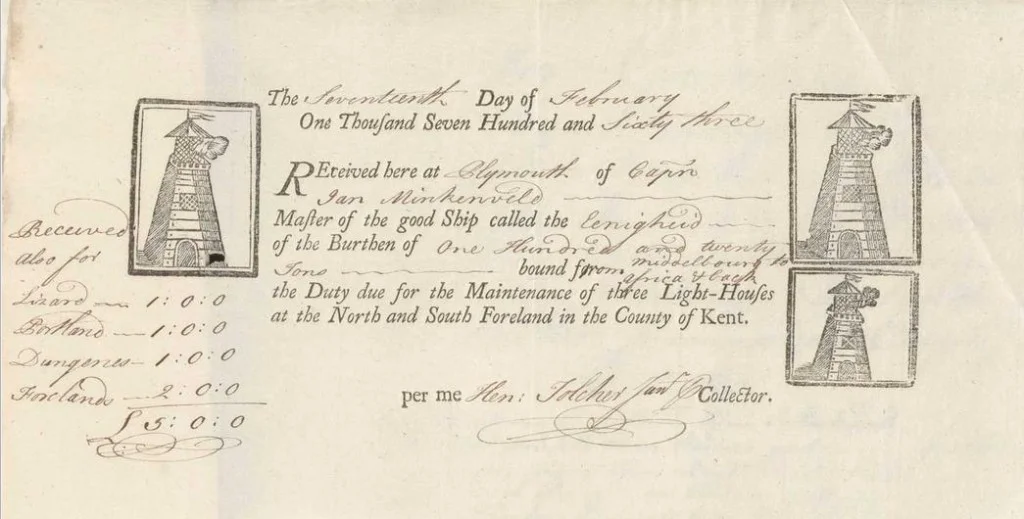 The Seventeenth Day of February
One Thouſand Seven Hundred and Sixty three
REceived here at Plymouth of Capn
Jan Minkenveld
Maſter of the good Ship called the Eenigheid
of the Burthen of One Hundred and twenty
Tons bound from middelbourg to
africa & back
the Duty due for the Maintenance of three Light-Houſes
at the North and South Foreland in the County of Kent.
per me Hen: Tolcher Junr Collector.
Received
also for
Lizard 1:0:0
Portland 1:0:0
Dungenes 1:0:0
Forelands 2:0:0
£ 5:0:0